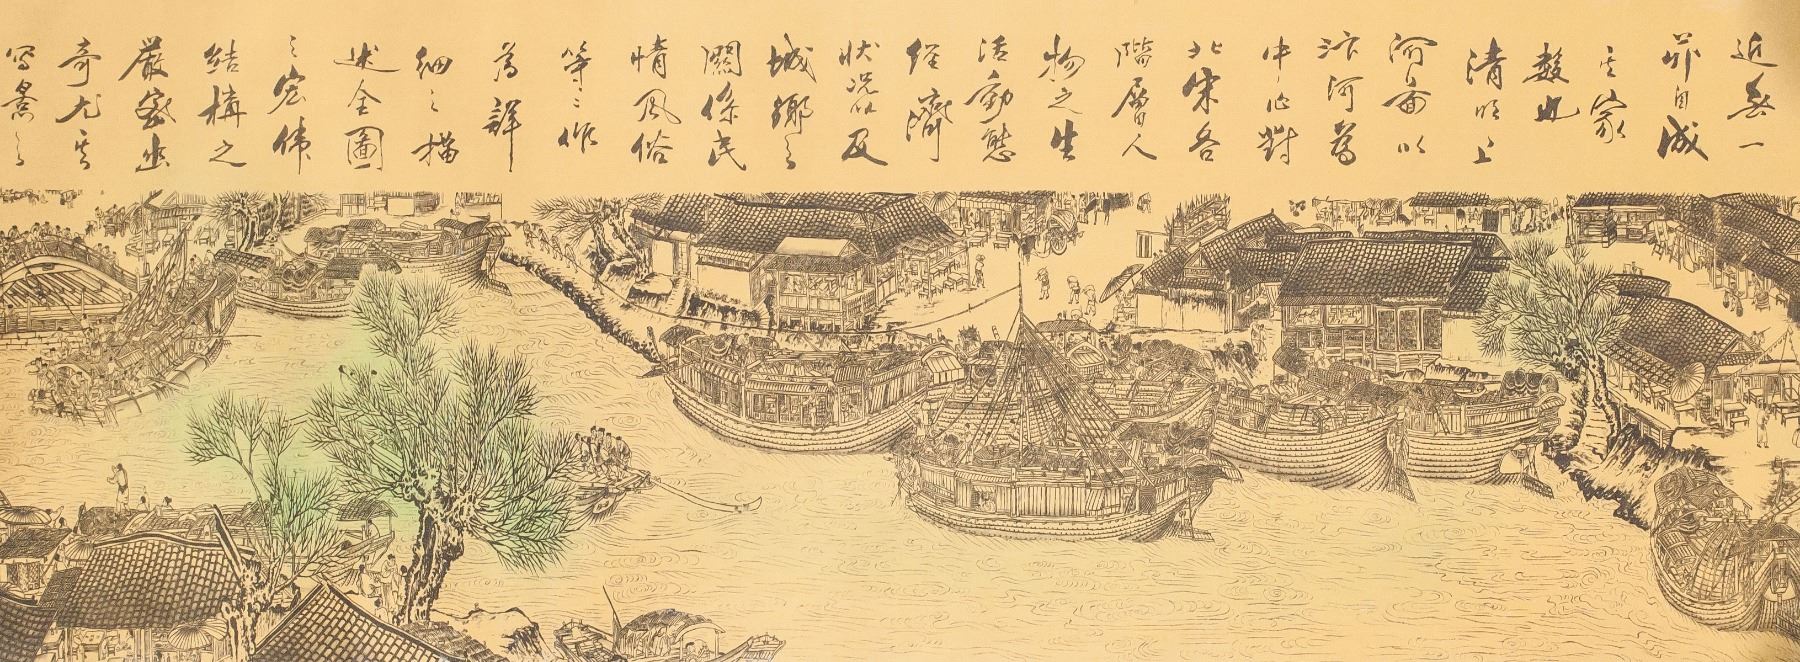 近一
自成
其家
數也
清明上
河圖以
汴河為
中心對
北宋各
階層人
物之生
活動態
經濟
狀況以及
城鄉之
關係民
情風俗
等等作
為詳
細之描
述全圖
之宏偉
結構之
嚴密出
奇尤其
寫景之